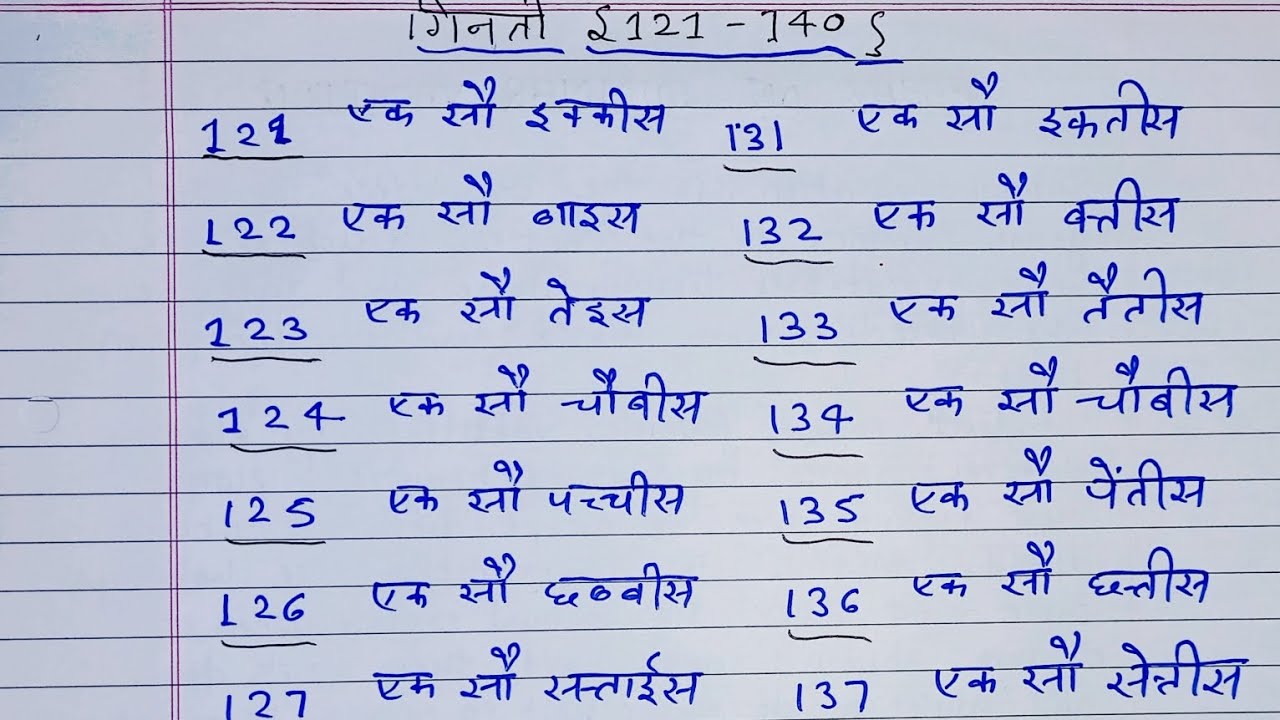 गिनती {121-140}
121 एक सौ इक्कीस 131 एक सौ इकतीस
122 एक सौ बाइस 132 एक सौ बत्तीस
123 एक सौ तेइस 133 एक सौ तैतीस
124 एक सौ चौबीस 134 एक सौ चौबीस
125 एक सौ पच्चीस 135 एक सौ पेंतीस
126 एक सौ छब्बीस 136 एक सौ छत्तीस
127 एक सौ सत्ताईस 137 एक सौ सेत्तीस